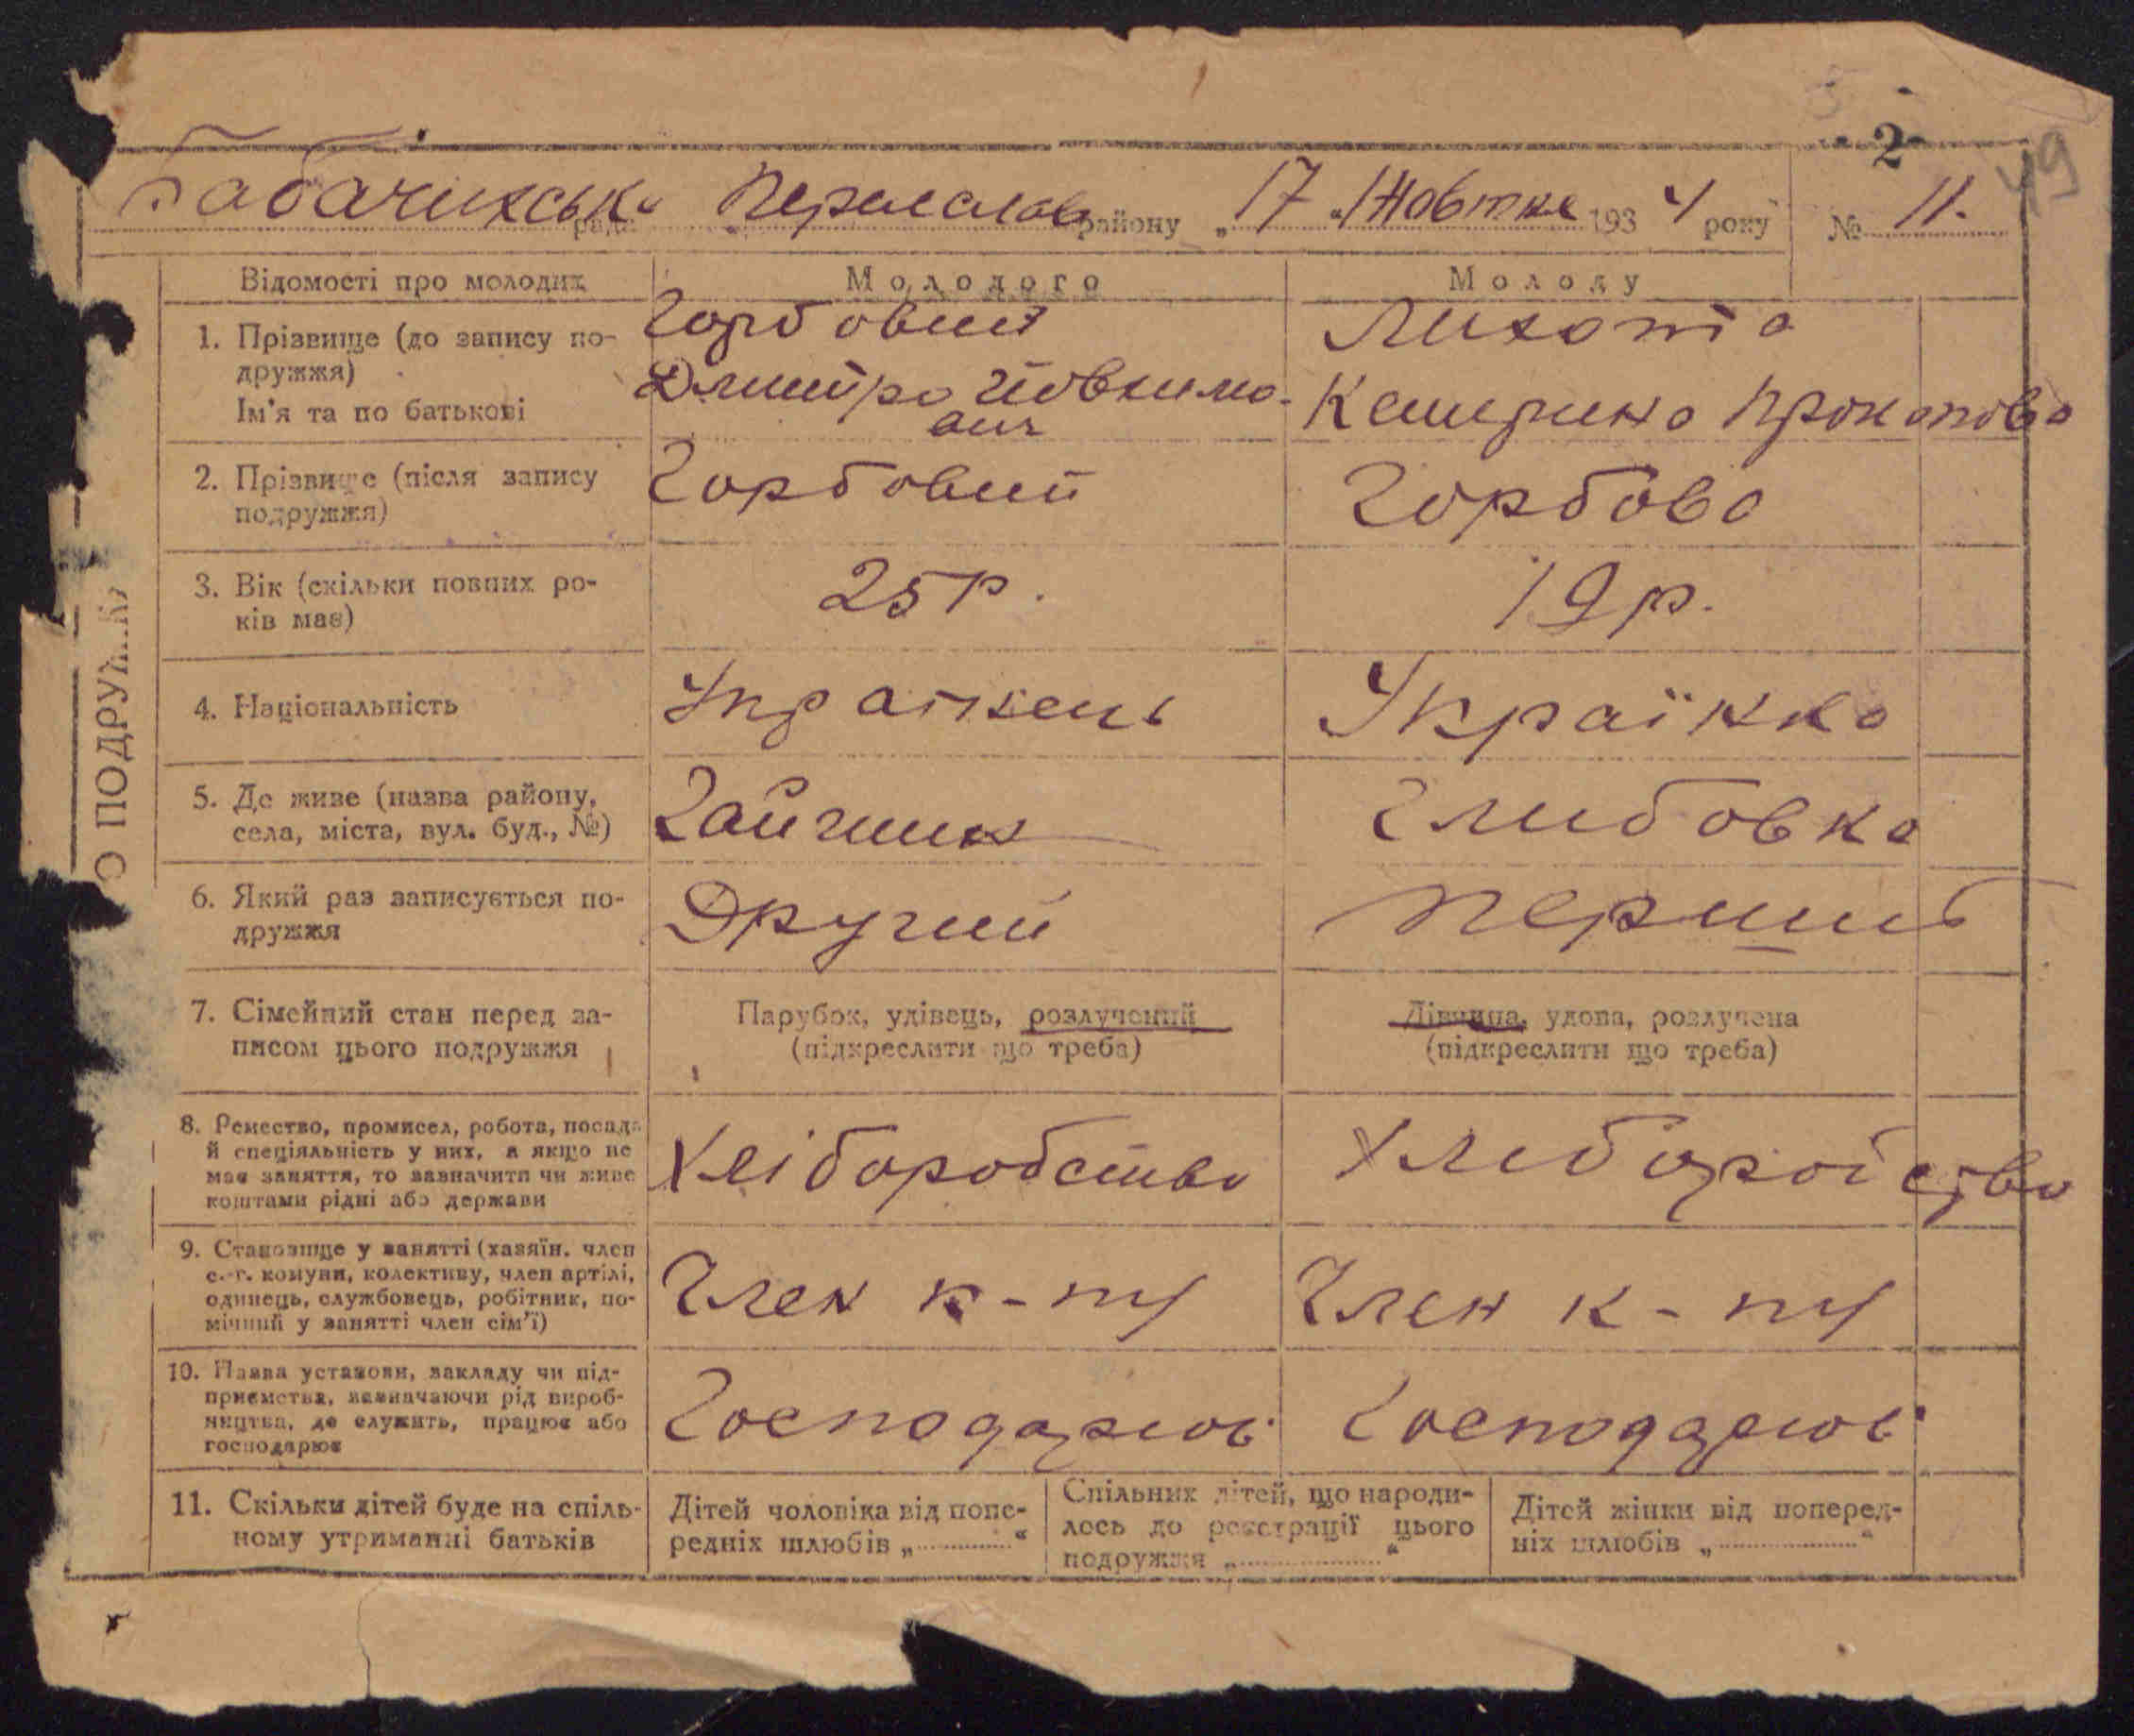 2
49
Габачинська рада Переяслав району „17“ Жовтня 1934 року № 11.
О ПОДРУЖ
Відомості про молодих
Молодого
Молоду
1. Прізвище (до запису по-
дружжя)
Ім'я та по батькові
Горбовий
Дмитро Йовхимо-
вич
Лихота
Катерина Прокопова
2. Прізвище (після запису
подружжя)
Горбовий
Горбова
3. Вік (скільки повних ро-
ків має)
25 р.
19 р.
4. Національність
Украінець
Українка
5. Де живе (назва району,
села, міста, вул. буд., №)
Гайчин
Глибовка
6. Який раз записується по-
дружжя
Другий
Перший
7. Сімейний стан перед за-
писом цього подружжя
Парубок, удівець, розлучений
(підкреслити що треба)
Дівчина, удова, розлучена
(підкреслити що треба)
8. Ремество, промисел, робота, посада
й спеціяльність у них, а якщо не
має заняття, то зазначити чи живе
коштами рідні або держави
Хліборобство
Хлиборобство
9. Становище у занятті (хазяїн, член
с.-г. комуни, колективу, член артілі,
одинець, службовець, робітник, по-
мічний у занятті член сім'ї)
Член к-пу
Член к-пу
10. Назва установи, закладу чи під-
приємства, зазначаючи рід вироб-
ництва, де служить, працює або
господарює
Господарює
Господарює
11. Скільки дітей буде на спіль-
ному утриманні батьків
Дітей чоловіка від попе-
редніх шлюбів „.............“
Спільних дітей, що народи-
лось до реєстрації цього
подружжя „.............“
Дітей жінки від поперед-
ніх шлюбів „.............“